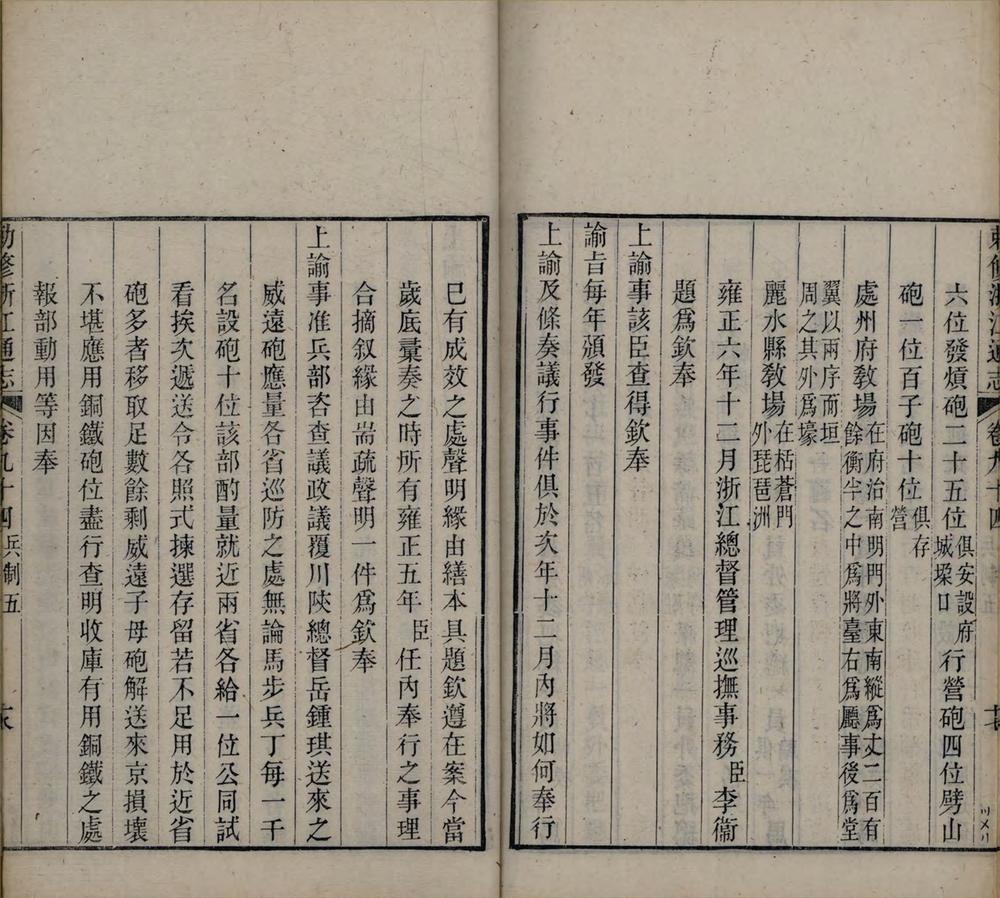 六位發熕砲二十五位俱安設府城垜口行營砲四位劈山
砲一位百子砲十位俱存營
處州府教場在府治南明門外東南縱為丈二百有餘衡半之中為將臺右為廳事後為堂
翼以兩序而垣周之其外為壕
麗水縣教場在栝蒼門外琵琶洲
雍正六年十二月浙江總督管理巡撫事務臣李衞
題為欽奉
上諭事該臣查得欽奉
諭旨每年頒發
上諭及條奏議行事件俱於次年十二月內將如何奉行
已有成效之處聲明緣由繕本具題欽遵在案今當
歲底彚奏之時所有雍正五年臣任內奉行之事理
合摘叙緣由耑疏聲明一件為欽奉
上諭事准兵部咨查議政議覆川陝總督岳鍾琪送來之
威遠砲應量各省巡防之處無論馬步兵丁每一千
名設砲十位該部酌量就近兩省各給一位公同試
看挨次遞送令各照式揀選存留若不足用於近省
砲多者移取足數餘剩威遠子母砲解送來京損壞
不堪應用銅鐵砲位盡行查明收庫有用銅鐵之處
報部動用等因奉
勅修浙江通志 卷九十四 兵制五